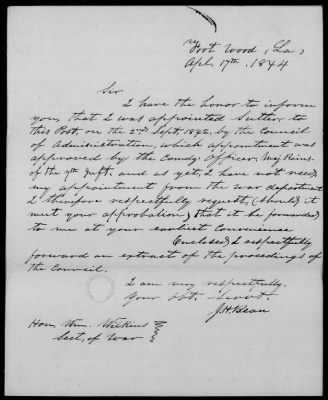 Fort Wood, (La.)
Apl. 17th, 1844
Sir
I have the honor to inform
you, that I was appointed Sutler, to
this Post, on the 2nd Sept. 1842, by the Council
of Administration, which appointment was
approved by the Comdg Officer, Maj Rains.
of the 7th Inft. and as yet, I have not recd
my appointment from the war department
I therefore respectfully request, (should it
meet your approbation) that it be forwarded
to me at your earliest Convenience
Enclosed, I respectfully
forward an extract of the proceedings of
the Council.
I am very respectfully.
Your Obt. Servt.
J.H. Bean
Hon. Wm. Wilkins
Sect. of War